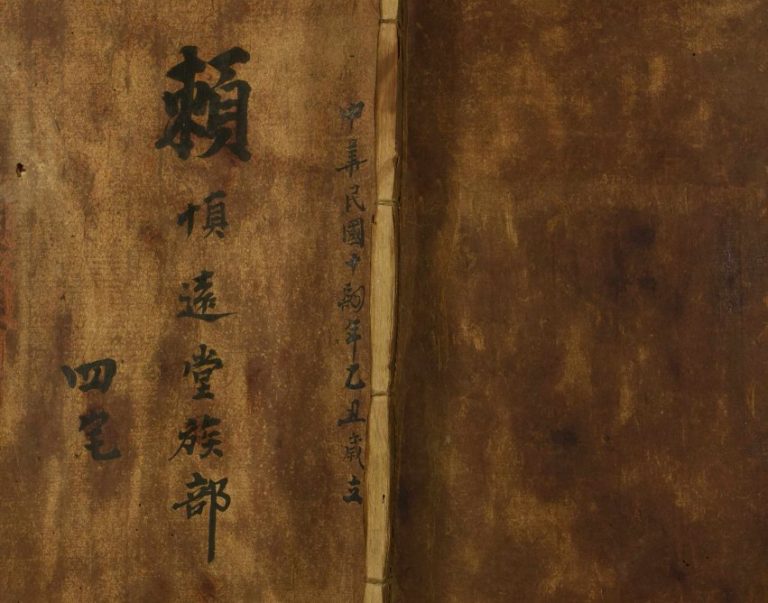 中華民國十年乙丑歲立
賴遠堂族部
四宅